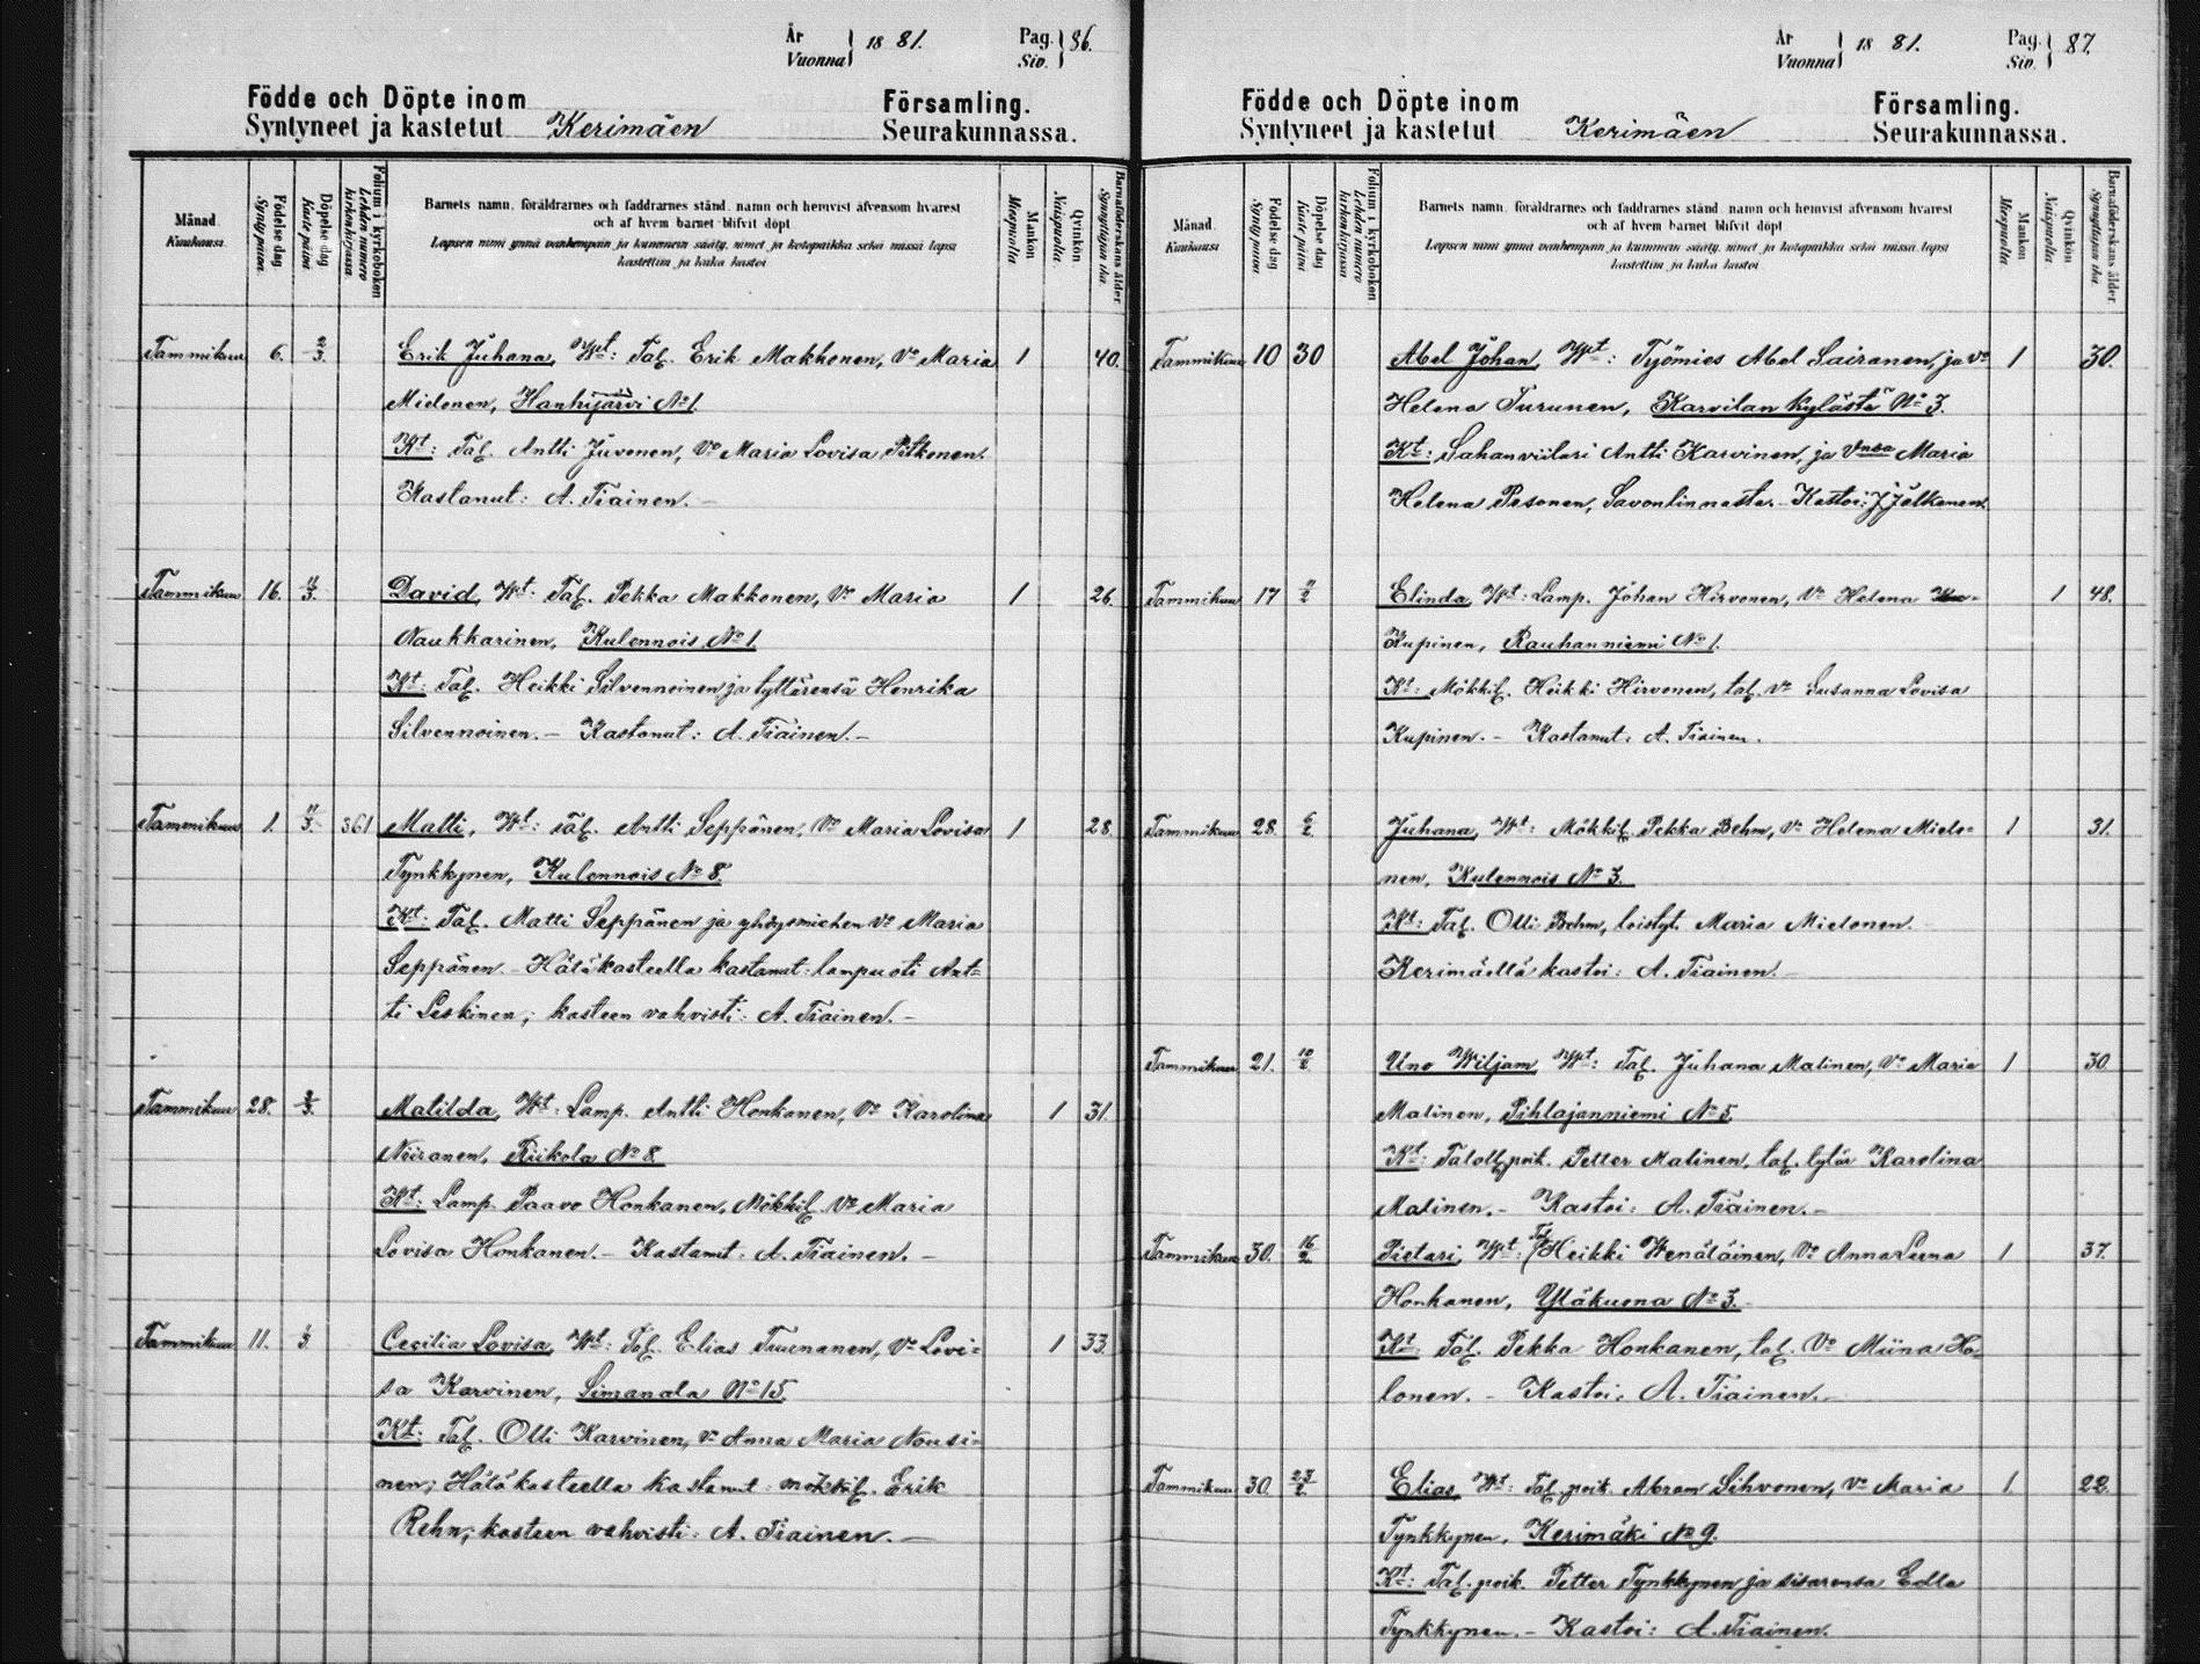 År Vuonna 1881. Pag. Siv. 86.
Födde och Döpte inom Församling.
Syntyneet ja kastetut Kerimäen Seurakunnassa.
Månad. Kuukausi.
Födelse dag Synty päiwä.
Döpelse dag Kaste päiwä
Folium i kyrkoboken Lehden numero kirkonkirjassa
Barnets namn, föräldrarnes och faddrarnes stånd, namn och hemvist äfvensom hvarest
och af hvem barnet blifvit döpt
Lapsen nimi ynnä vanhempain ja kummein sääty, nimet ja kotopaikka sekä missä lapsi
kastettiin ja kuka kastoi
Mankön Miespuolia
Qvinkön Naispuolia.
Barnaföderskans ålder Synnyttäjän ikä.
Tammikuu 6. 2/3. Erik Juhana, Wt: Tal. Erik Makkonen, Vo Maria 1 40.
Mielonen, Hanhijärvi No 1.
Kt: Tal. Antti Juvonen, Vo Maria Lovisa Pitkonen.
Kastanut: A. Tiainen.-
Tammikuu 16. 11/3. David, Wt: Tal. Pekka Makkonen, Vo Maria 1 26.
Naukkarinen, Kulennois No 1.
Kt: Tal. Heikki Silvennoinen ja tyttärensä Henrika
Silvennoinen.- Kastanut: A. Tiainen.-
Tammikuu 1. 11/3. 361 Matti, Wt: Tal. Antti Seppänen, Vo Maria Lovisa 1 28.
Tynkkynen, Kulennois No 8.
Kt: Tal. Matti Seppänen ja yhtiömiehen Vo Maria
Seppänen.- Hätäkasteella kastanut: lampuoti Ant=
ti Leskinen; kasteen vahvisti: A. Tiainen.-
Tammikuu 28. 2/3. Matilda, Wt: Lamp. Antti Honkanen, Vo Karolina 1 31.
Niiranen, Riikola No 8.
Kt: Lamp. Paavo Honkanen, Mökkil. Vo Maria
Lovisa Honkanen.- Kastanut: A. Tiainen.-
Tammikuu 11. 1/3 Cecilia Lovisa, Wt: Tal. Elias Tuunanen, Vo Lovi= 1 33.
sa Karvinen, Simanala No 15.
Kt: Tal. Olli Karvinen, Vo Anna Maria Nousi=
nen; Hätäkasteella kastanut: mökkil. Erik
Rehn; kasteen vahvisti: A. Tiainen.-
År Vuonna 1881. Pag. Siv. 87.
Födde och Döpte inom Församling.
Syntyneet ja kastetut Kerimäen Seurakunnassa.
Månad. Kuukausi
Födelse dag Synty päiwä
Döpelse dag Kaste päiwä
Folium i kyrkoboken Lehden numero kirkonkirjassa
Barnets namn, föräldrarnes och faddrarnes stånd, namn och hemvist äfvensom hvarest
och af hvem barnet blifvit döpt
Lapsen nimi ynnä vanhempain ja kummein sääty, nimet ja kotopaikka sekä missä lapsi
kastettiin ja kuka kastoi
Mankön Miespuolia
Qvinkön Naispuolia
Barnaföderskans ålder Synnyttäjän ikä
Tammikuu 10 30 Abel Johan, Wt: Työmies Abel Sairanen, ja Vo 1 30.
Helena Turunen, Karvilan kylästä No 3.
Kt: Sahanviilari Antti Karvinen, ja Vnsa Maria
Helena Pesonen, Savonlinnasta.- Kastoi: J. Jälkenen.
Tammikuu 17 11/2 Elinda, Wt: Lamp. Johan Hirvonen, Vo Helena 1 48.
Kupinen, Rauhanniemi No 1.
Kt: Mökkil. Heikki Hirvonen, tal. Vo Susanna Lovisa
Kupinen.- Kastanut: A. Tiainen.
Tammikuu 28. 6/2 Juhana, Wt: Mökkil. Pekka Behm, Vo Helena Mielo= 1 31.
nen, Kulennois No 3.
Kt: Tal. Olli Behm, loistyt. Maria Mielonen.
Kerimäellä kastoi: A. Tiainen.-
Tammikuu 21. 10/2 Uno Wiljam, Wt: Tal. Juhana Malinen, Vo Maria 1 30
Malinen, Pihlajanniemi No 5.
Kt: Taloll. poik. Petter Malinen, tal. tytär Karolina
Malinen.- Kastoi: A. Tiainen.-
Tammikuu 30. 16/2 Pietari, Wt: Tal. Heikki Wenäläinen, Vo Anna Leena 1 37.
Honkanen, Yläkuona No 3.
Kt: Tal. Pekka Honkanen, tal. Vo Miina Ho=
lonen.- Kastoi: A. Tiainen.-
Tammikuu 30. 23/2. Elias, Wt: Tal. poik. Abram Sihvonen, Vo Maria 1. 22.
Tynkkynen, Kerimäki No 9.
Kt: Tal. poik. Petter Tynkkynen ja sisarensa Edla
Tynkkynen.- Kastoi: A. Tiainen.